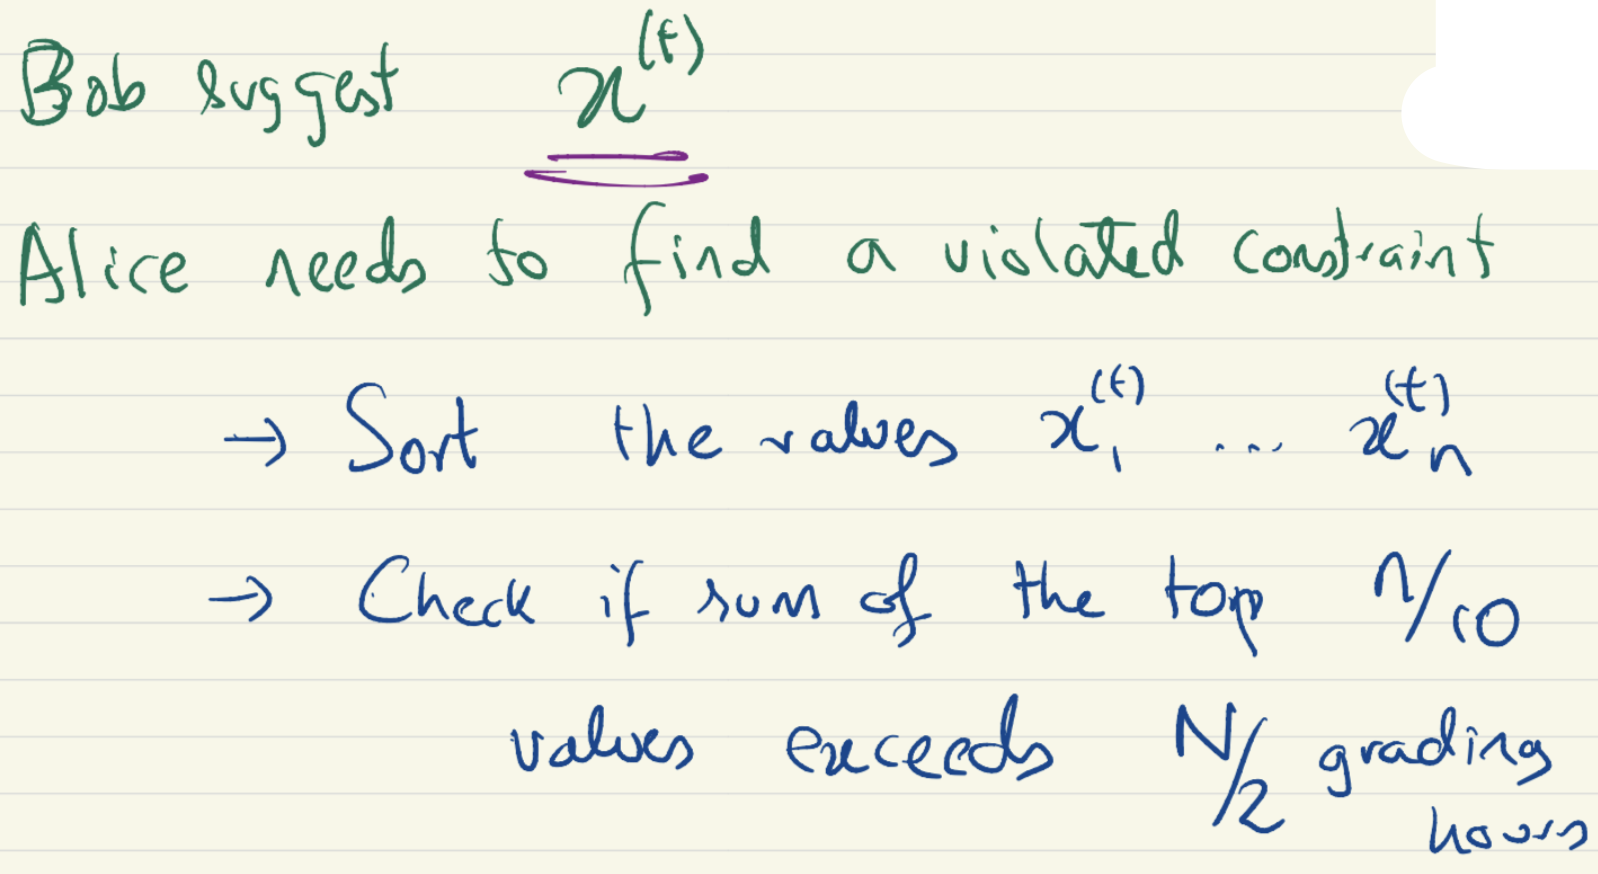 Bob suggest x^(t)
Alice needs to find a violated constraint
→ Sort the values x_1^(t) ... x_n^(t)
→ Check if sum of the top n/10
values exceeds N/2 grading
hours